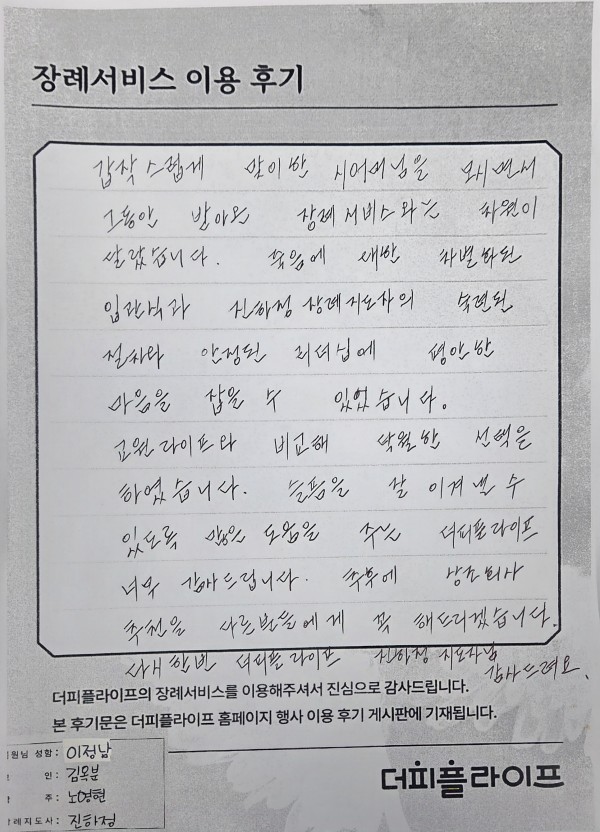 장례서비스 이용 후기
갑작스럽게 맞이한 시어머님을 모시면서
그동안 받아온 장례서비스와는 차원이
달랐습니다. 죽음에 대한 차별화된
입관식과 진하정 장례지도자의 숙련된
절차와 안정된 리더십에 평안한
마음을 잡을 수 있었습니다.
교원라이프와 비교해 탁월한 선택을
하였습니다. 슬픔을 잘 이겨낼 수
있도록 많은 도움을 주는 더피플라이프
너무 감사드립니다. 추후에 상조회사
추천을 다른분들에게 꼭 해드리겠습니다.
다시한번 더피플라이프 진하정 지도자님
감사드려요.
더피플라이프의 장례서비스를 이용해주셔서 진심으로 감사드립니다.
본 후기문은 더피플라이프 홈페이지 행사 이용 후기 게시판에 기재됩니다.
원님 성함 : 이정남
인 : 김옥분
주 : 노영현
례지도사 : 진하정
더피플라이프